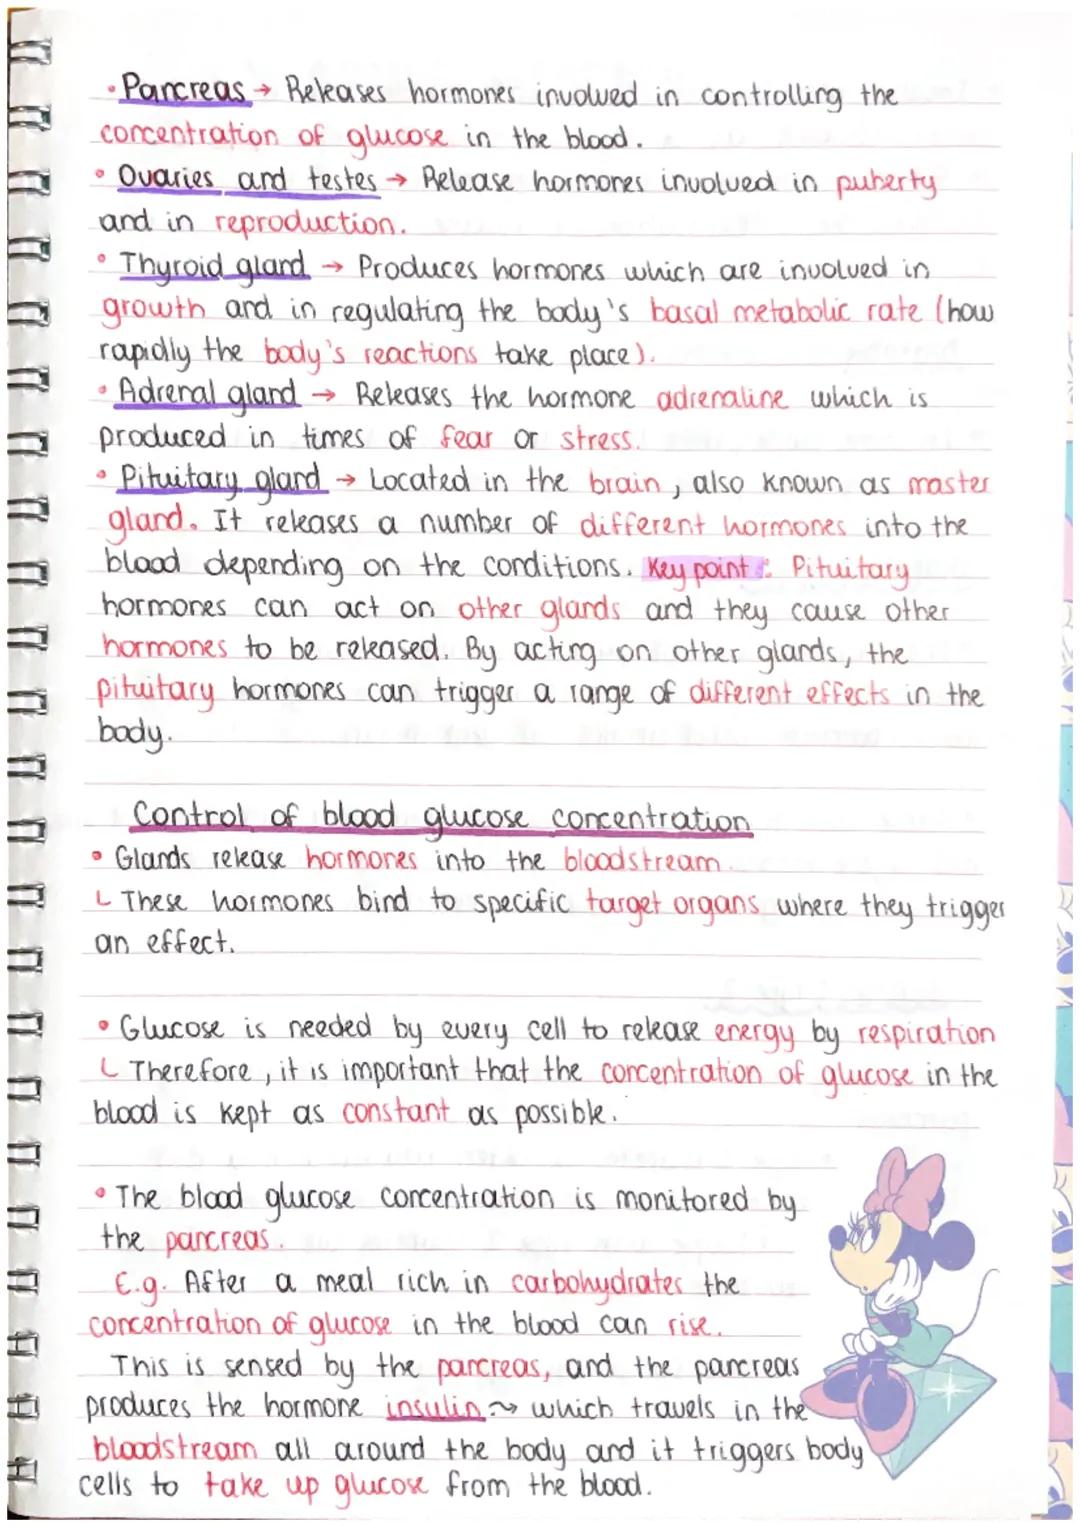 • Pancreas → Releases hormones involved in controlling the
concentration of glucose in the blood.
• Ovaries and testes → Release hormones involved in puberty
and in reproduction.
• Thyroid gland → Produces hormones which are involved in
growth and in regulating the body's basal metabolic rate (how
rapidly the body's reactions take place).
• Adrenal gland → Releases the hormone adrenaline which is
produced in times of fear or stress.
• Pituitary gland → Located in the brain, also known as master
gland. It releases a number of different hormones into the
blood depending on the conditions. Key point: Pituitary
hormones can act on other glands and they cause other
hormones to be released. By acting on other glands, the
pituitary hormones can trigger a range of different effects in the
body.
Control of blood glucose concentration
• Glands release hormones into the bloodstream.
↳ These hormones bind to specific target organs where they trigger
an effect.
• Glucose is needed by every cell to release energy by respiration
↳ Therefore, it is important that the concentration of glucose in the
blood is kept as constant as possible.
• The blood glucose concentration is monitored by
the pancreas.
E.g. After a meal rich in carbohydrates the
concentration of glucose in the blood can rise.
This is sensed by the pancreas, and the pancreas
produces the hormone insulin ⤳ which travels in the
bloodstream all around the body and it triggers body
cells to take up glucose from the blood.